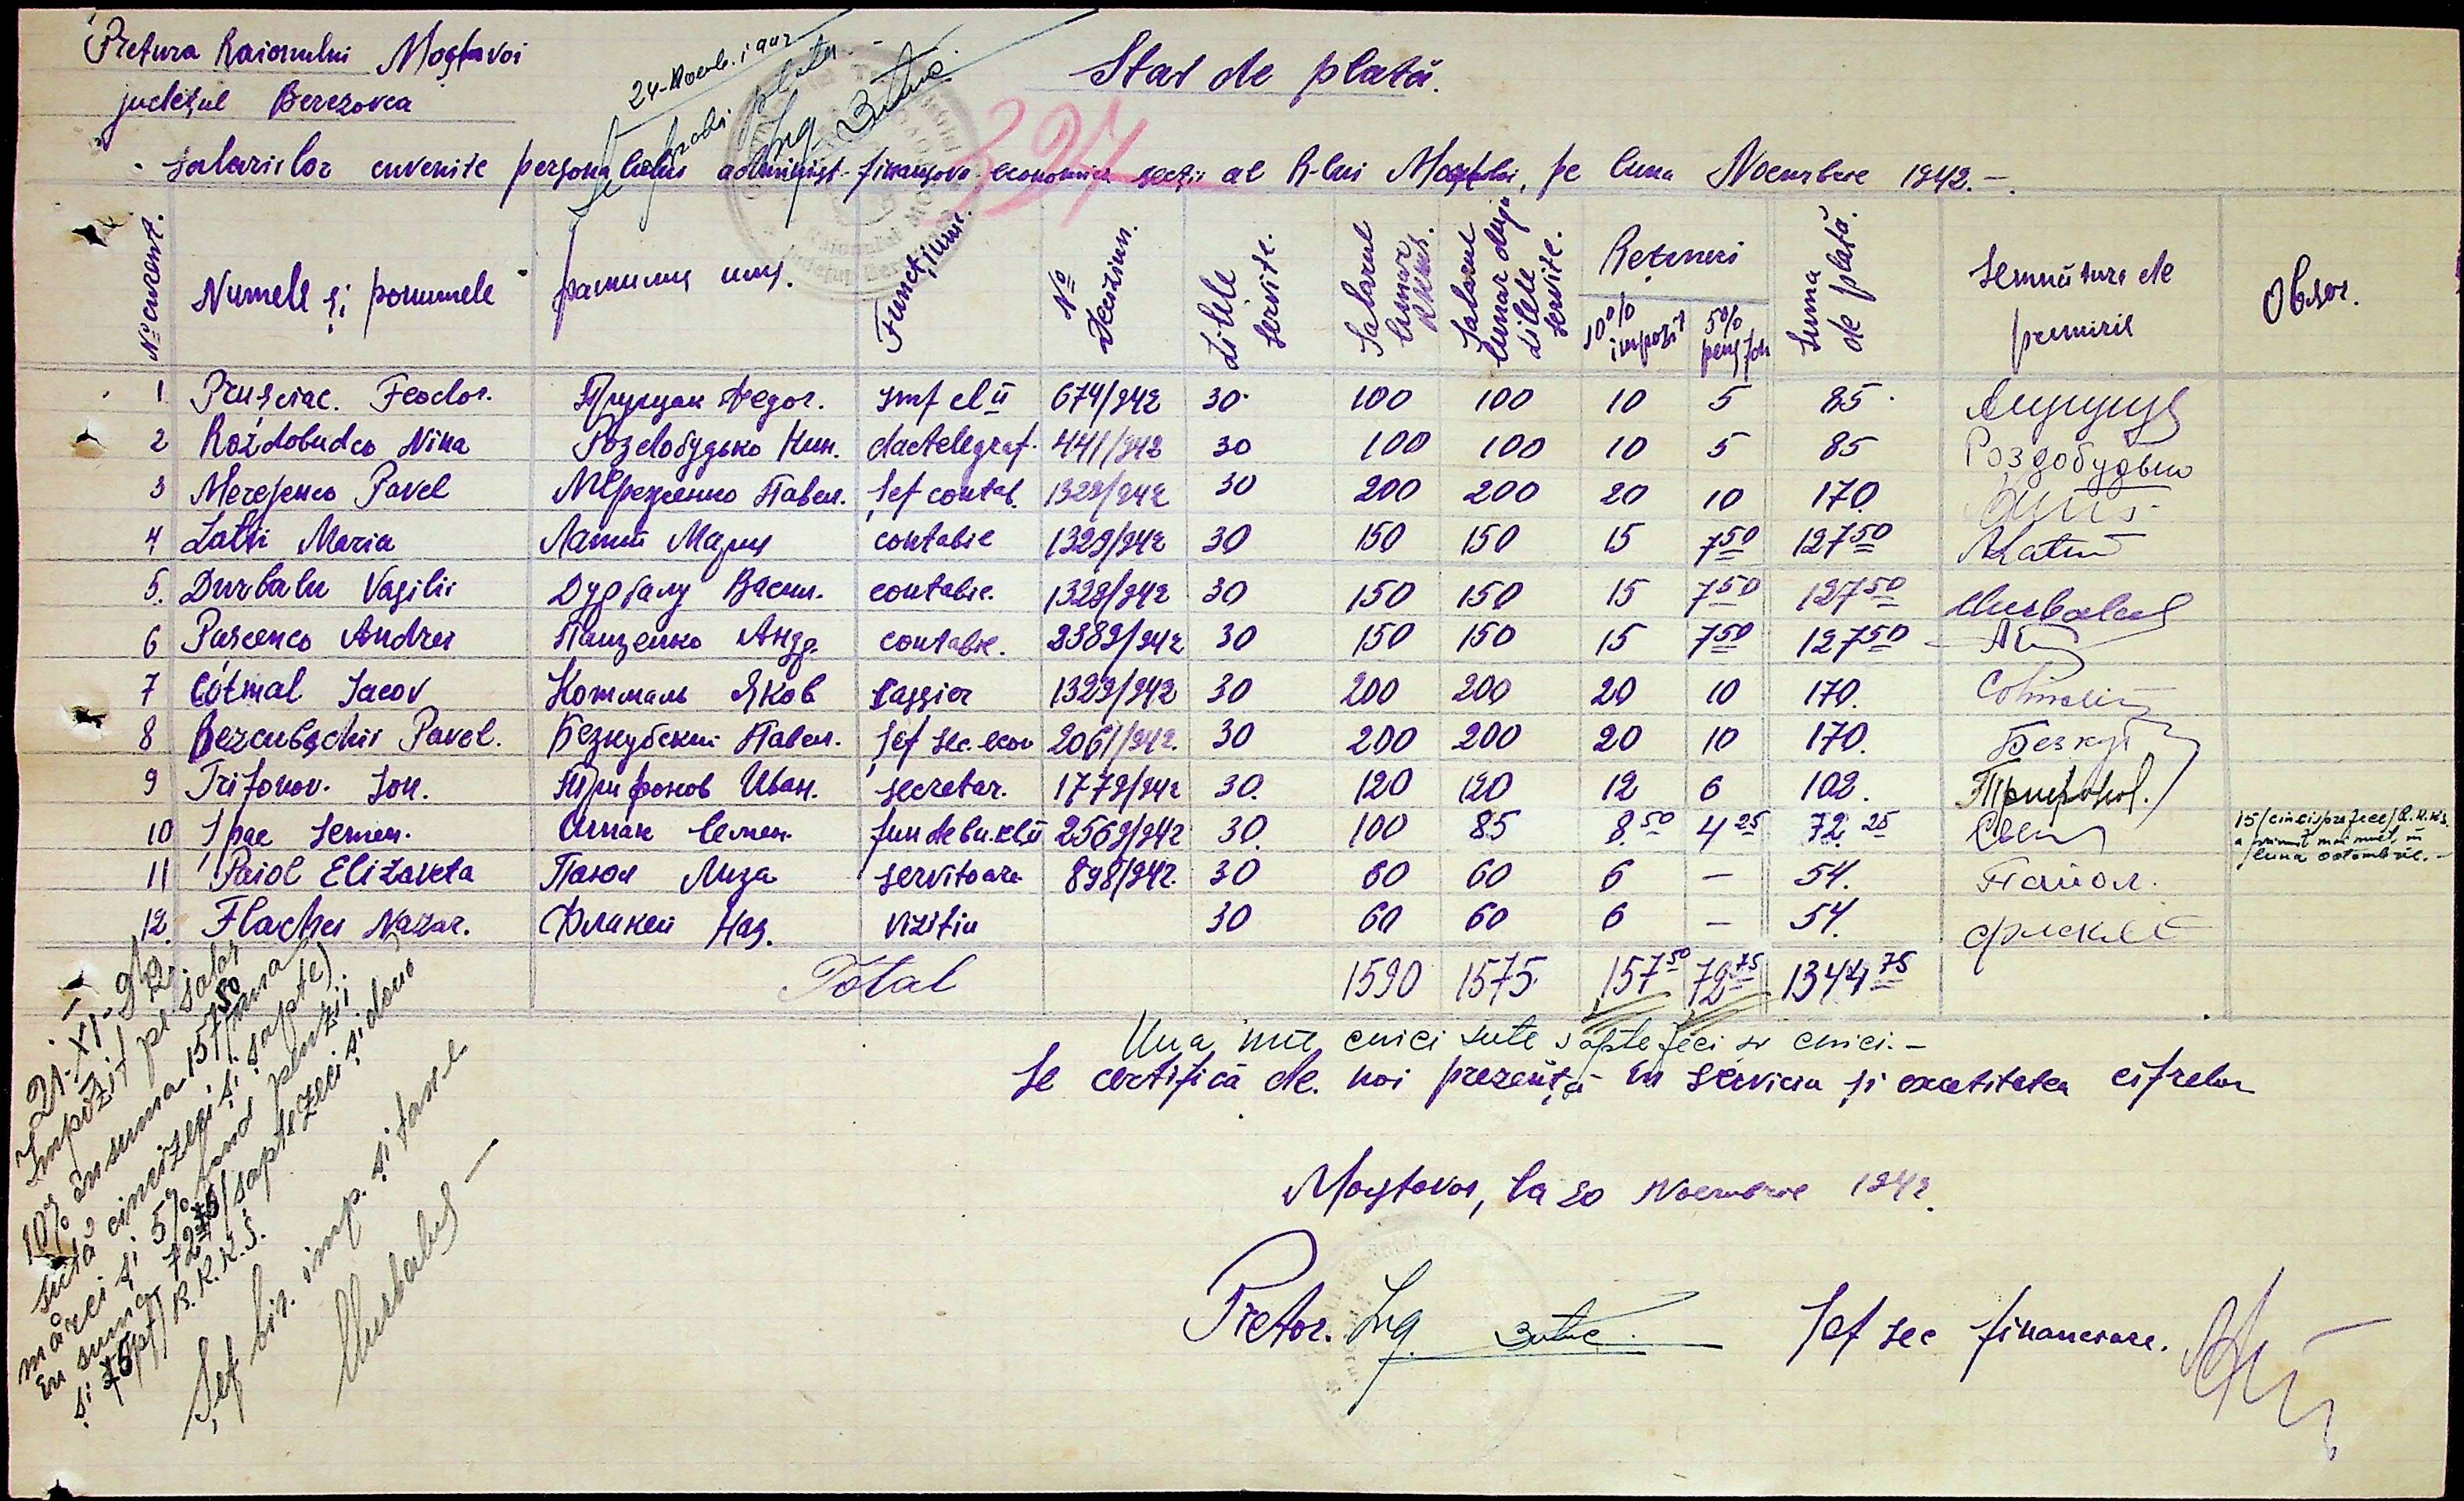 Pretura Raionului Mostovoi
județul Berezovca
24-Noemb. 1942
Se aprobă plata.-
Ing. Butuc
Stat de plată.
327
salariilor cuvenite personalului administ-financiaro-economică secții al R-lui Mostovoi, pe luna Noembrie 1942.-
No curent. Numele și pronumele фамилия имя. Funcțiunea No Deciziun. Zilele servite. Salarul lunar Salarul lunar după zilele servite. Rețineri 10% impozit 5% pens fon Suma de plată. Semnătura de primirii Obser.
1 Prușciac. Feodor. Прущак Федор. șmf cl II 674/942 30 100 100 10 5 85
2 Rozdobudco Nina Роздобудько Нин. dactelegraf. 441/942 30 100 100 10 5 85 Роздобудько
3 Merejenco Pavel Мереженко Павел. șef contab. 1329/942 30 200 200 20 10 170.
4 Latii Maria Латий Мария contabie 1329/942 30 150 150 15 7 50 127 50 Латий
5. Durbalu Vasilii Дурбалу Васил. contabie. 1329/942 30 150 150 15 7 50 127 50 Durbalu
6 Pascenco Andrei Пащенко Андр. contabie. 2389/942 30 150 150 15 7 50 127 50
7 Cotmal Iacov Котмаль Яков cassier 1329/942 30 200 200 20 10 170.
8 Bezcubschii Pavel. Безкубский Павел. șef sec. econ 2061/942. 30 200 200 20 10 170. Безкуб
9 Trifonov. Ion. Трифонов Иван. secretar. 1779/942 30. 120 120 12 6 102. Трифонов.
10 Șpac Semen. Шпак Семен. fun de bu. cl II 2569/942 30. 100 85 8. 50 4 25 72. 25 15/cincisprezece/R.K.K.S. a primit mai mult în luna octombrie.-
11 Paiol Elizaveta Паюл Лиза servitoare 898/942. 30 60 60 6 — 54. Пайол.
12. Flachei Nazar. Флакей Наз. vizitiu 30 60 60 6 — 54. Флакей
Total 1590 1575 157 50 72 75 1344 75
Una mie cinci sute șaptezeci și cinci.-
Se certifică de noi prezența în serviciu și exactitatea cifrelor
Mostovoi, la 20 Noembrie 1942.
Pretor. Ing. Butuc
Șef sec financiare.
21-XI-942.
Impozit pe salar
10% în suma 157 50 (una
sută cincizeci și șapte)
mărci și 5% fond pensii
în suma 72 75/șaptezeci și doue
și 75 pf/R.K.K.S.
Șef bir. imp. și taxe
Durbalu —